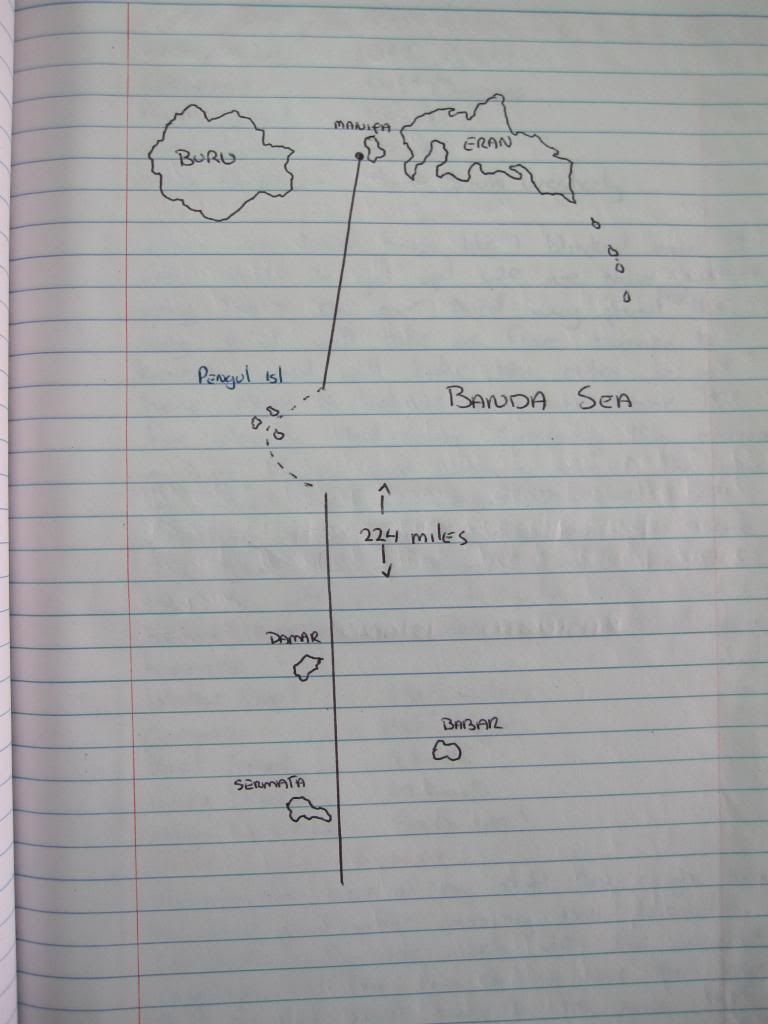 MANIPA
BURU
ERAN
Pengul isl
BANDA SEA
224 miles
DAMAR
BABAR
SERMATA